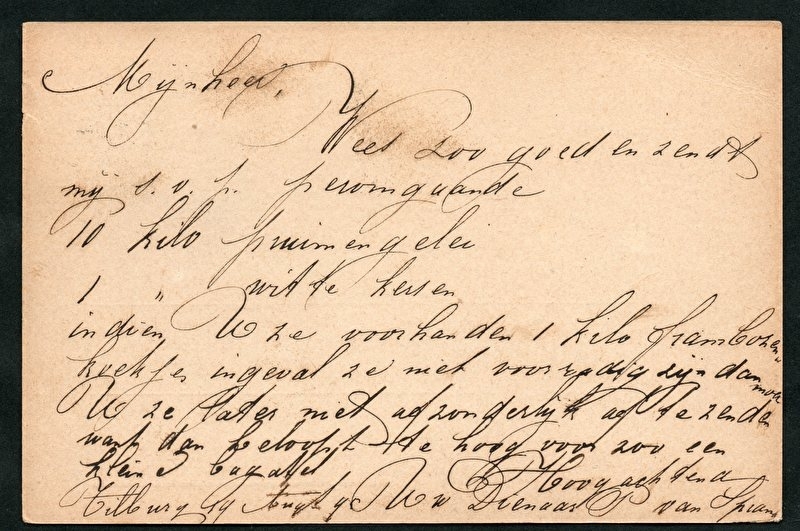 Mijnheer,
Wees zoo goed en zendt
mij s. v. p. peromgaande
10 kilo pruimengelei
1 " witte kersen
indien U ze voorhanden 1 kilo frambozen
koekjes ingeval ze niet voorradig zijn dan
U ze later niet afzonderlijk af te zenden
want dan beloopt te hoog voor zoo een
kleine bagatel Hoogachtend
Tilburg 19 Uw Dienaar P van Spaan